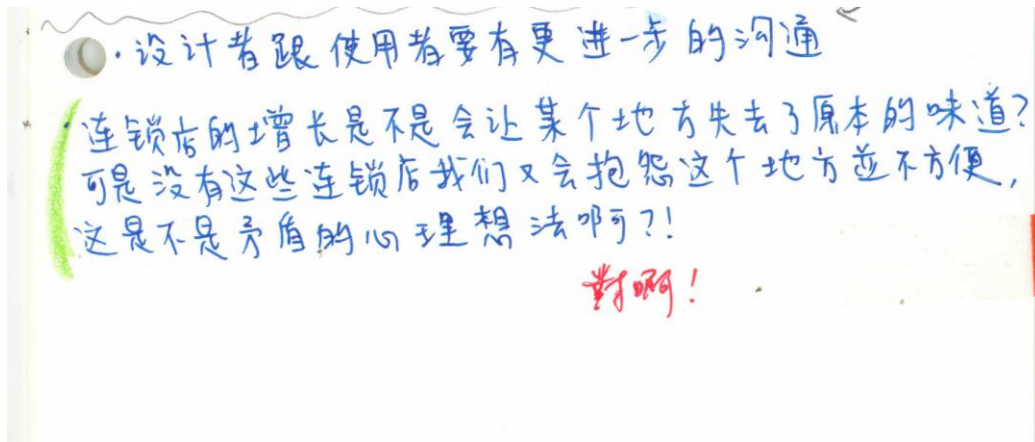 ·设计者跟使用者要有更进一步的沟通
·连锁店的增长是不是会让某个地方失去了原本的味道?
可是没有这些连锁店我们又会抱怨这个地方並不方便,
这是不是矛盾的心理想法啊?!
對啊!